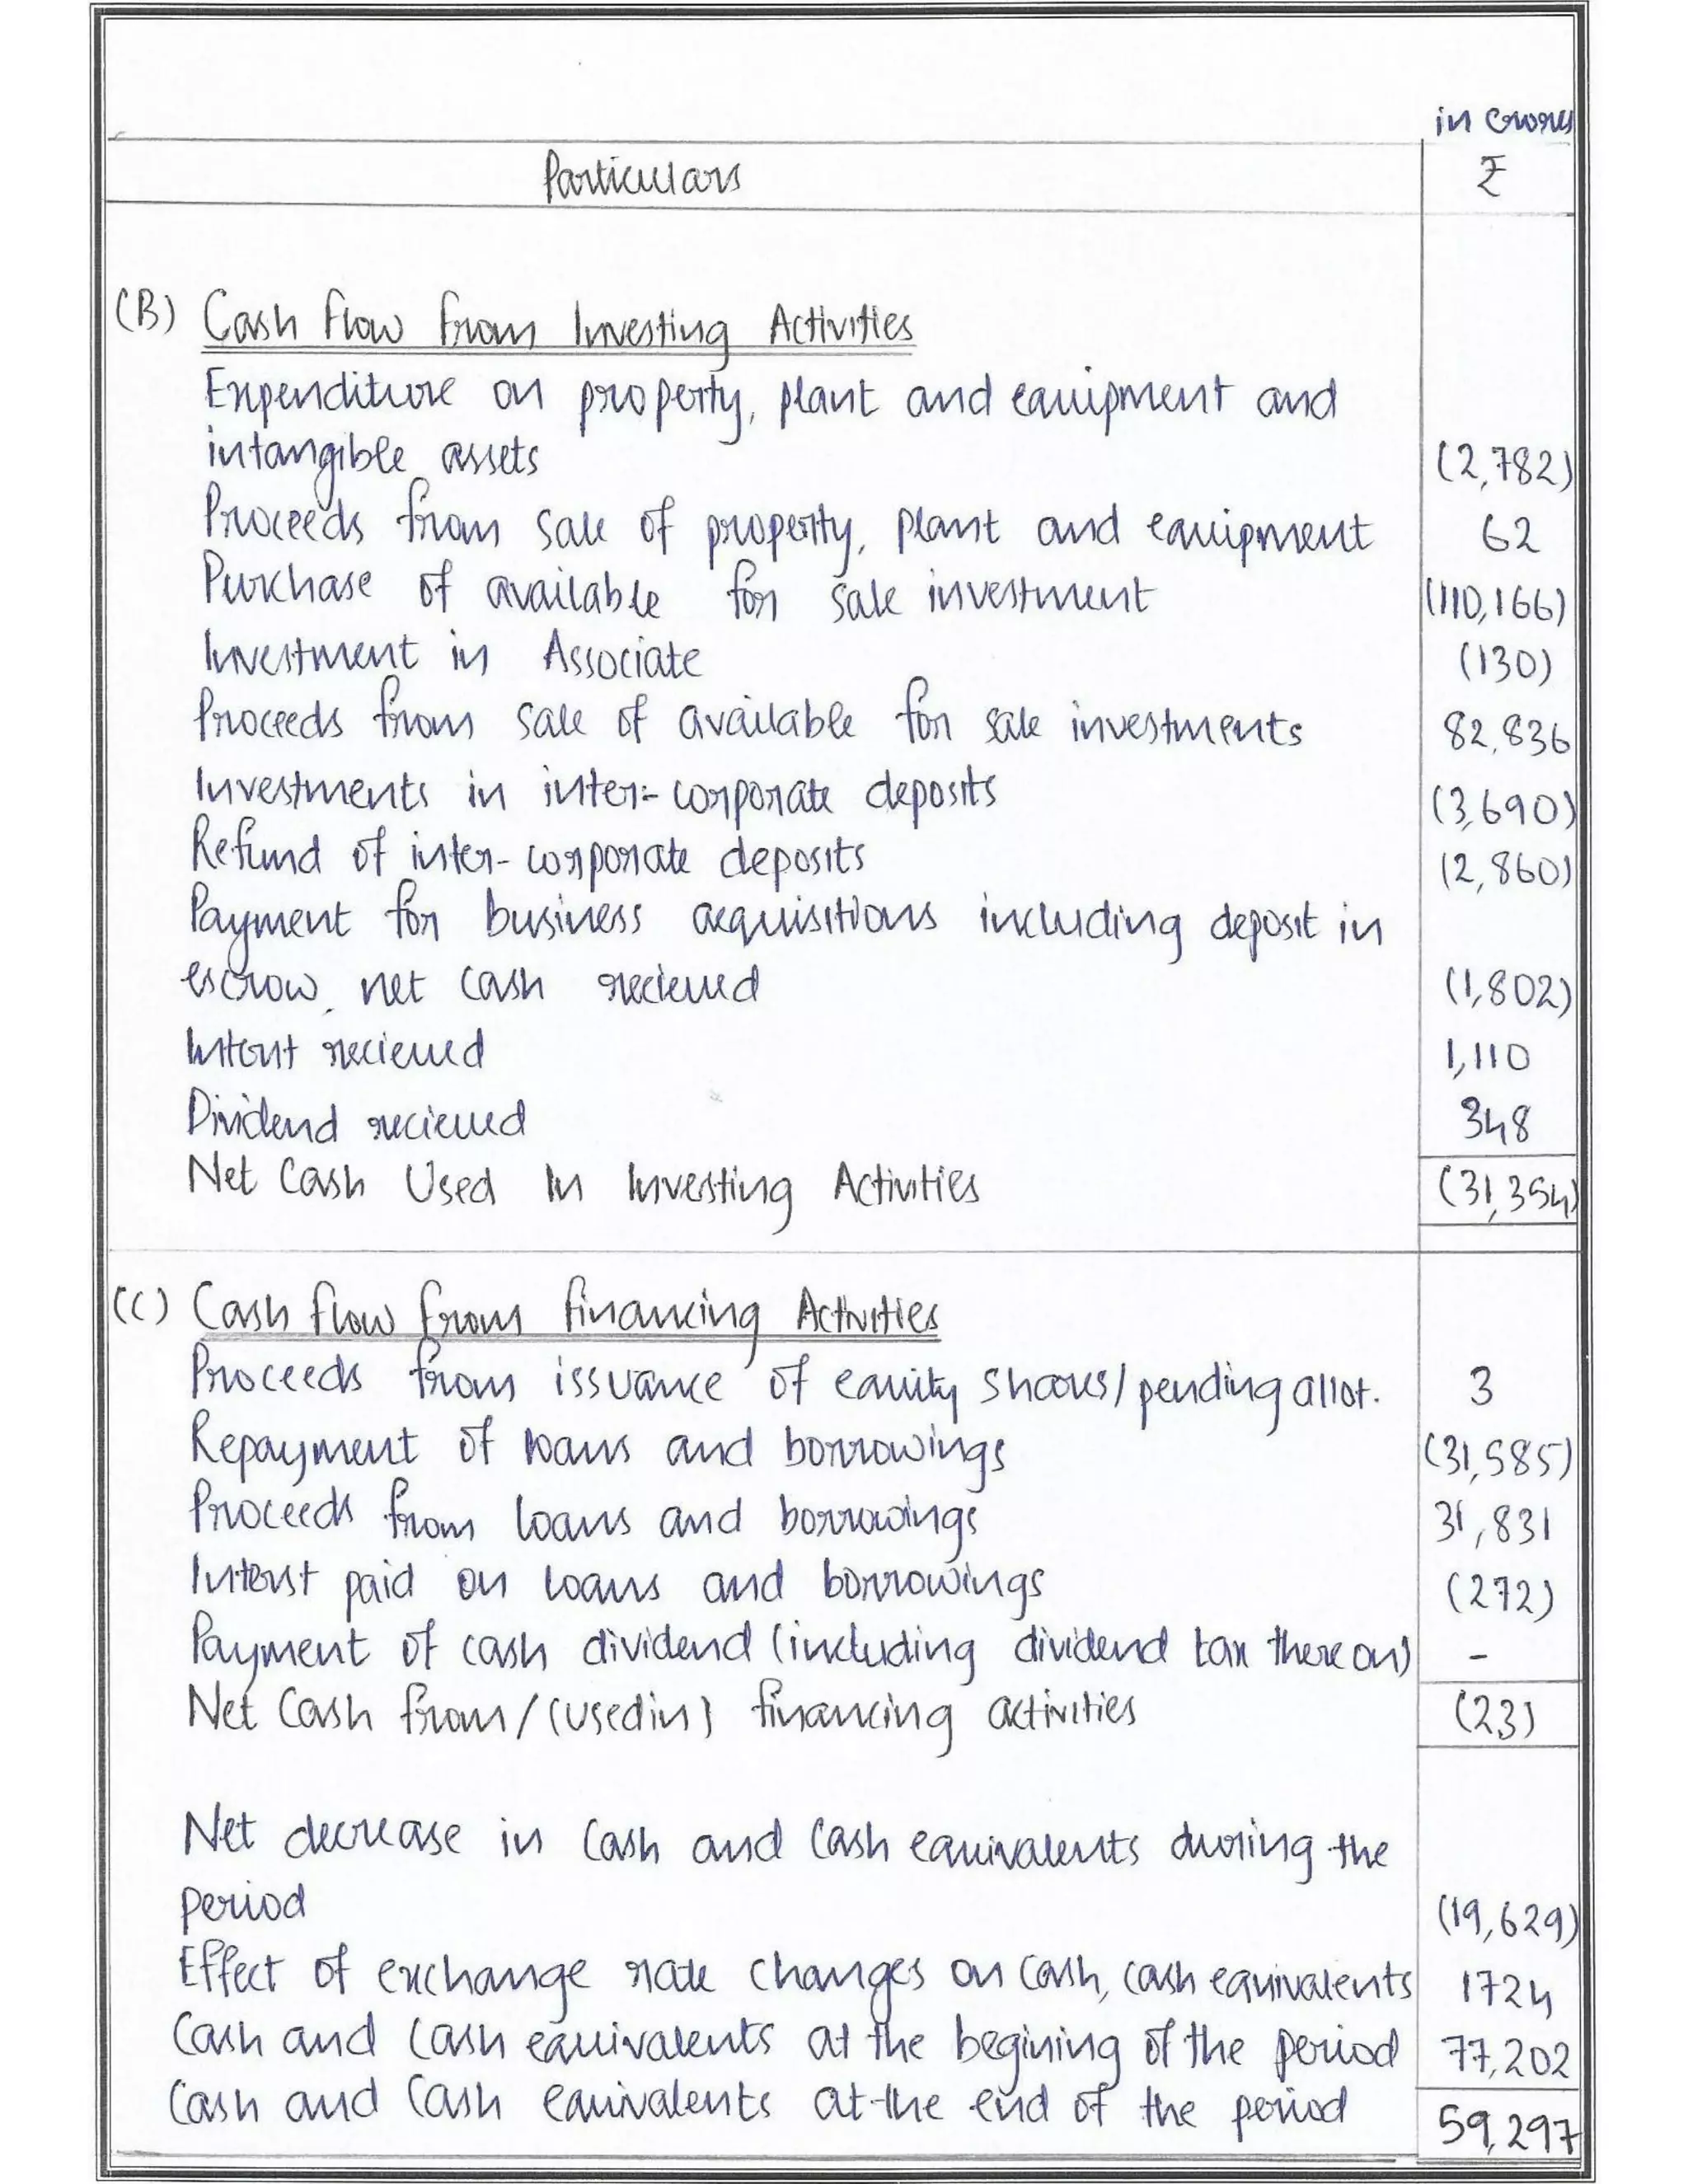 in crores
Particulars ₹
(B) Cash Flow from Investing Activities
Expenditure on property, plant and equipment and
intangible assets (2,782)
Proceeds from sale of property, plant and equipment 62
Purchase of available for sale investment (110,166)
Investment in Associate (130)
Proceeds from sale of available for sale investments 82,836
Investments in inter-corporate deposits (3,690)
Refund of inter-corporate deposits (2,860)
Payment for business acquisitions including deposit in
escrow, net cash recieved (1,802)
Interst recieved 1,110
Dividend recieved 348
Net Cash Used In Investing Activities (31,354)
(C) Cash flow from financing Activities
Proceeds from issuance of equity shares/pending allot. 3
Repayment of loans and borrowings (31,585)
Proceeds from loans and borrowings 31,831
Interst paid on loans and borrowings (272)
Payment of cash dividend (including dividend tax there on) -
Net Cash from/(used in) financing activities (23)
Net decrease in Cash and Cash equivalents during the
period (19,629)
Effect of exchange rate changes on cash, cash equivalents 1724
Cash and Cash equivalents at the begining of the period 77,202
Cash and Cash equivalents at the end of the period 59,297